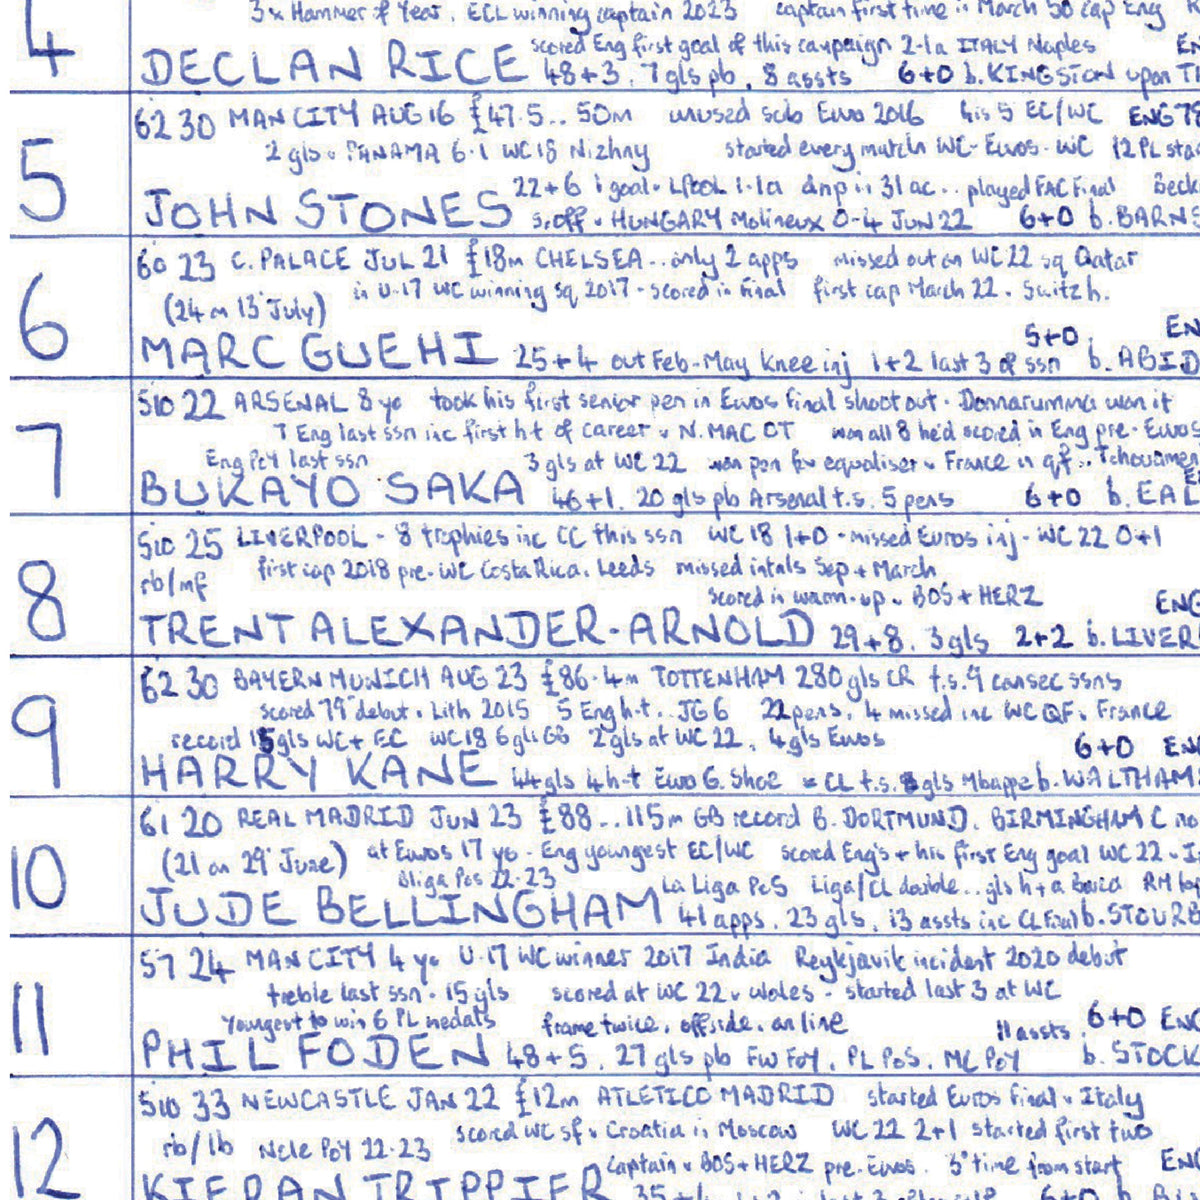 4
3x Hammer of Year. ECL winning captain 2023 captain first time in March 50 cap Eng
scored Eng first goal of this campaign 2-1a ITALY Naples
DECLAN RICE 48+3. 7 gls pb. 8 assts 6+0 b. KINGSTON upon
5
62 30 MAN CITY AUG 16 £47.5.. 50m unused sub Euro 2016 his 5 EC/WC ENG
2 gls v PANAMA 6-1 WC 18 Nizhny started every match WC-Euros-WC 12 PL
22+6 1 goal - LPOOL 1-1a dnp in 31 ac .. played FAC Final
JOHN STONES s.off v HUNGARY Molineux 0-4 JUN 22 6+0 b.
6
60 23 C. PALACE JUL 21 £18m CHELSEA.. only 2 apps missed out on WC 22 sq Qatar
in U-17 WC winning sq 2017 - scored in final first cap March 22 - Switzh.
(24 on 13 July)
5+0
MARC GUEHI 25+4 out Feb-May knee inj 1+2 last 3 of ssn b.
7
510 22 ARSENAL 8 yo took his first senior pen in Euros final shootout - Donnarumma won it
7 Eng last ssn inc first h-t of career v N. MAC OT won all 8 he'd scored in Eng pre-Euros
Eng PoY last ssn 3 gls at WC 22 won pen for equaliser v France in qf..
BUKAYO SAKA 46+1. 20 gls pb Arsenal t.s. 5 pens 6+0 b.
8
510 25 LIVERPOOL - 8 trophies inc CC this ssn WC 18 1+0 - missed Euros inj - WC 22 0+1
rb/mf first cap 2018 pre-WC Costa Rica. Leeds missed intnls Sep + March
scored in warm-up v BOS+HERZ
ENG
TRENT ALEXANDER-ARNOLD 29+8. 3 gls 2+2 b.
9
62 30 BAYERN MUNICH AUG 23 £86.4m TOTTENHAM 280 gls CR t.s. 9 consec ssns
scored 79" debut v Lith 2015 5 Eng h-t. JG 6 22 pens. 4 missed inc WC QF v France
record 15 gls WC+EC WC 18 6 gls GB 2 gls at WC 22. 4 gls Euros 6+0
HARRY KANE 44 gls 4 h-t Euro G. Shoe = CL t.s. 8 gls Mbappe b.
10
61 20 REAL MADRID JUN 23 £88..115m GB record B. DORTMUND. BIRMINGHAM C
(21 on 29 June) at Euros 17 yo - Eng youngest EC/WC scored Eng's + his first Eng goal WC 22 v
Bliga PoS 22-23 La Liga PoS Liga/CL double.. gls h+a Barca RM
JUDE BELLINGHAM 41 apps. 23 gls. 13 assts inc CL Final b.
11
57 24 MAN CITY 4 yo U-17 WC winner 2017 India Reykjavik incident 2020 debut
treble last ssn - 15 gls scored at WC 22 v Wales - started last 3 at WC
Youngest to win 6 PL medals frame twice. offside. on line 11 assts. 6+0 ENG
PHIL FODEN 48+5. 27 gls pb FW FoY. PL PoS. MC PoY b.
12
510 33 NEWCASTLE JAN 22 £12m ATLETICO MADRID started Euros Final v Italy
rb/lb Ncle PoY 22-23 scored WC sf v Croatia in Moscow WC 22 2+1 started first two
captain v BOS+HERZ pre-Euros. 3" time from start ENG
KIERAN TRIPPIER